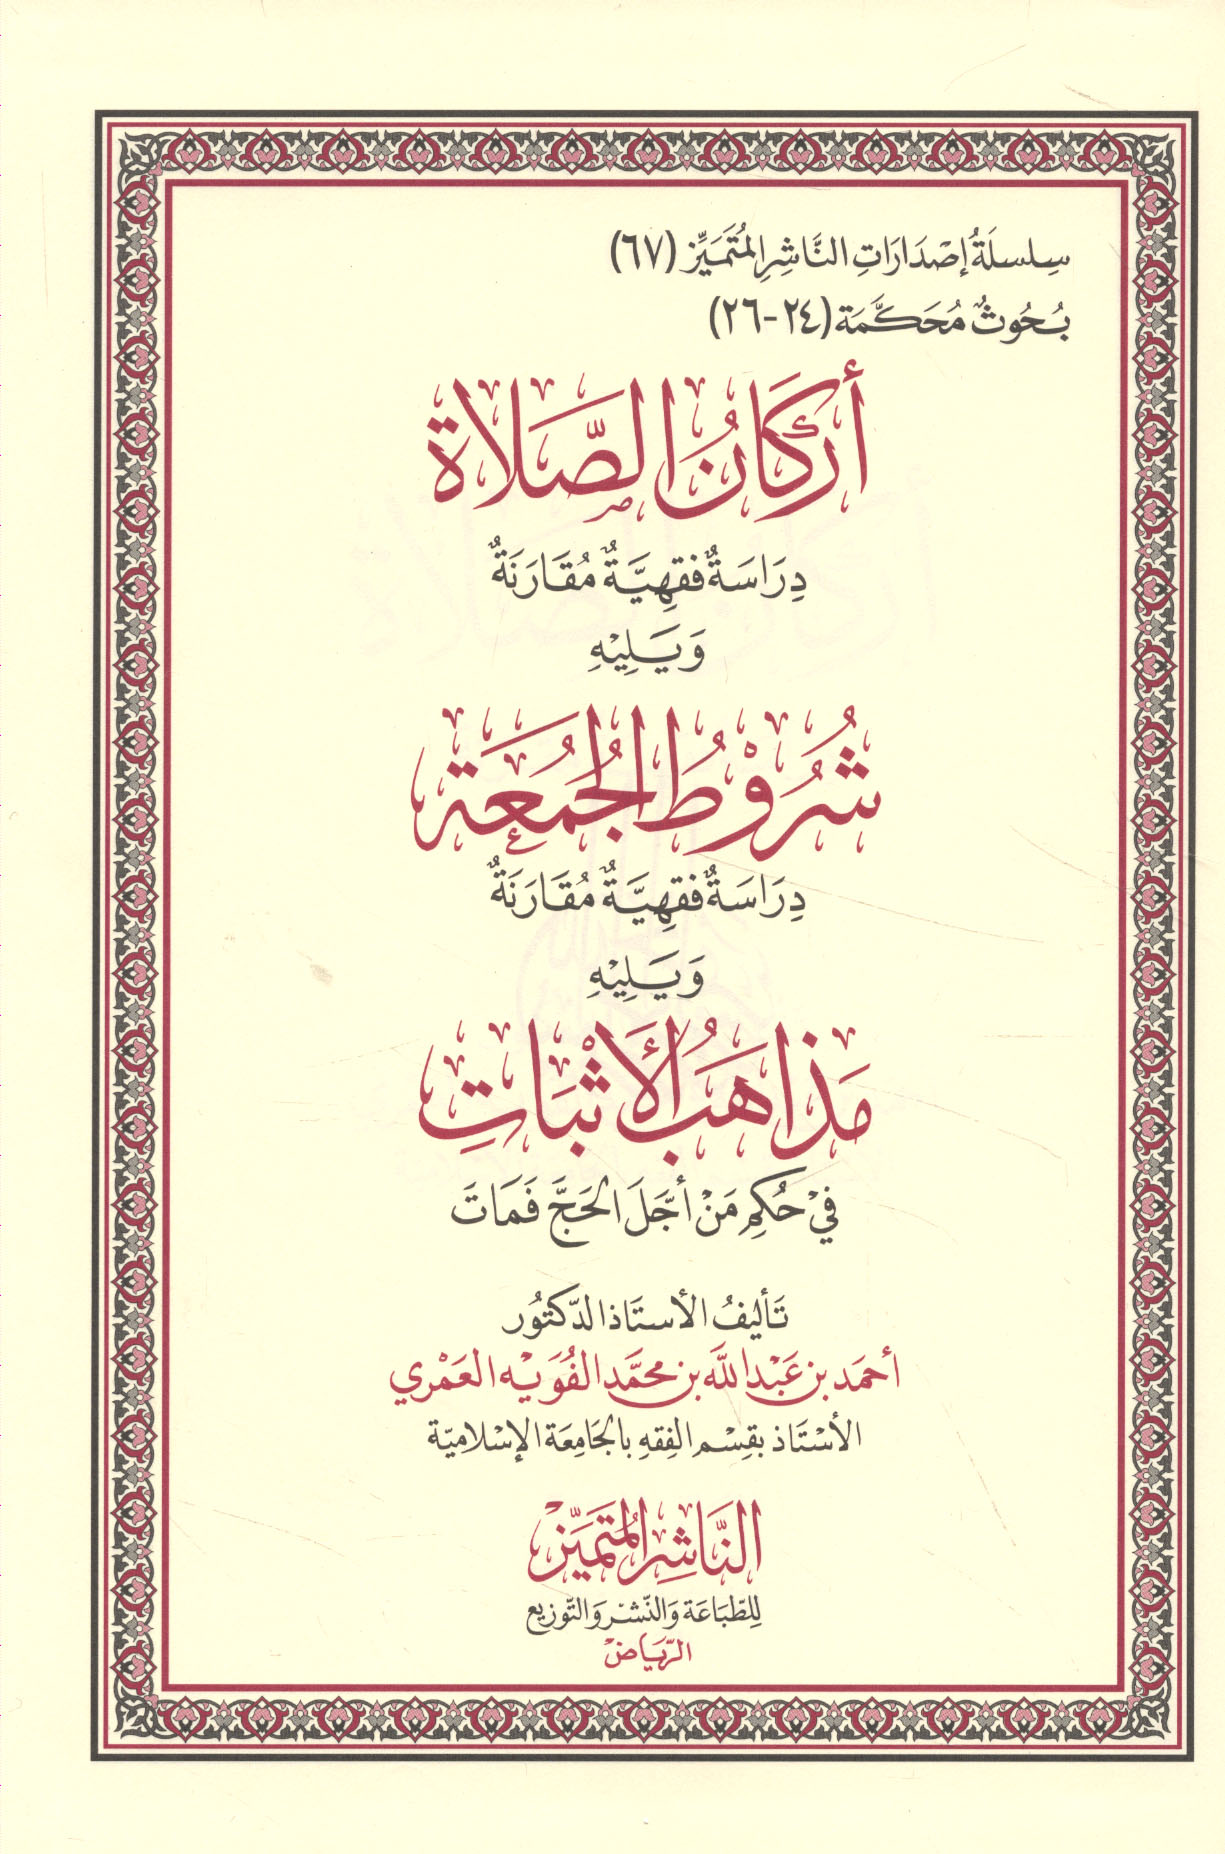 سِلسلَةُ إصْدَارَاتِ النَّاشِرِ المُتَمَيِّز (٦٧)
بُحُوثٌ مُحَكَّمَة (٢٤-٢٦)
أَركَانُ الصَّلَاة
دِرَاسَةٌ فقهِيَّةٌ مُقَارَنَةٌ
وَيَلِيْهِ
شُرُوْطُ الجُمُعَة
دِرَاسَةٌ فقهِيَّةٌ مُقَارَنَةٌ
وَيَلِيْهِ
مَذاهَبُ الأَثْبَاتِ
فيْ حُكمِ مَنْ أجَّلَ الحَجَّ فَمَاتَ
تَأليفُ الأستَاذ الدّكتوُر
أحمَد بن عَبْد اللَّه بن محمَّد الفُوَيْه العَمْري
الأسْتَاذ بقِسْم الفِقهِ بالجَامِعَة الإسْلاميّة
النَّاشِرُ المُتَمَيِّز
للطّبَاعَة وَالنّشْر وَالتّوزيع
الرّيَاضْ